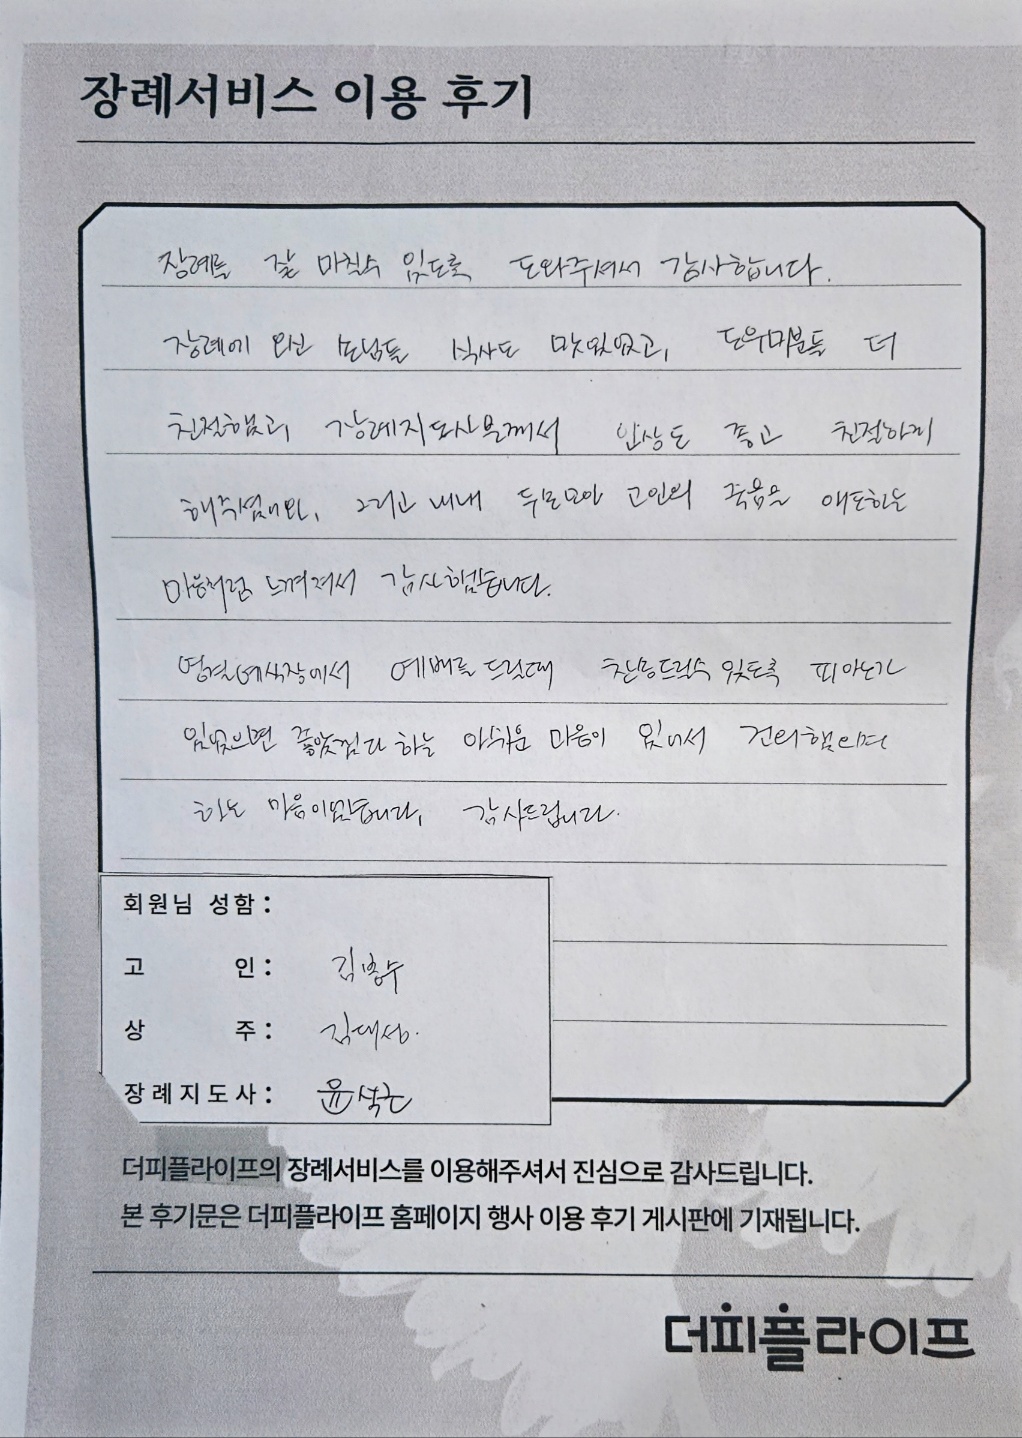 장례서비스 이용 후기
장례를 잘 마칠수 있도록 도와주셔서 감사합니다.
장례에 오신 손님들 식사도 맛있었고, 도우미분들 더
친절했고, 장례지도사분께서 인상도 좋고 친절하게
해주셨으며, 그리고 내내 두분모아 고인의 죽음을 애도하는
마음처럼 느껴져서 감사했습니다.
영결예식장에서 예배를 드릴때 찬송드릴수 있도록 피아노가
있었으면 좋았겠다 하는 아쉬운 마음이 있어서 건의했으면
하는 마음이었습니다, 감사드립니다.
회원님 성함:
고 인: 김병수
상 주: 김대성.
장례지도사: 윤석근
더피플라이프의 장례서비스를 이용해주셔서 진심으로 감사드립니다.
본 후기문은 더피플라이프 홈페이지 행사 이용 후기 게시판에 기재됩니다.
더피플라이프